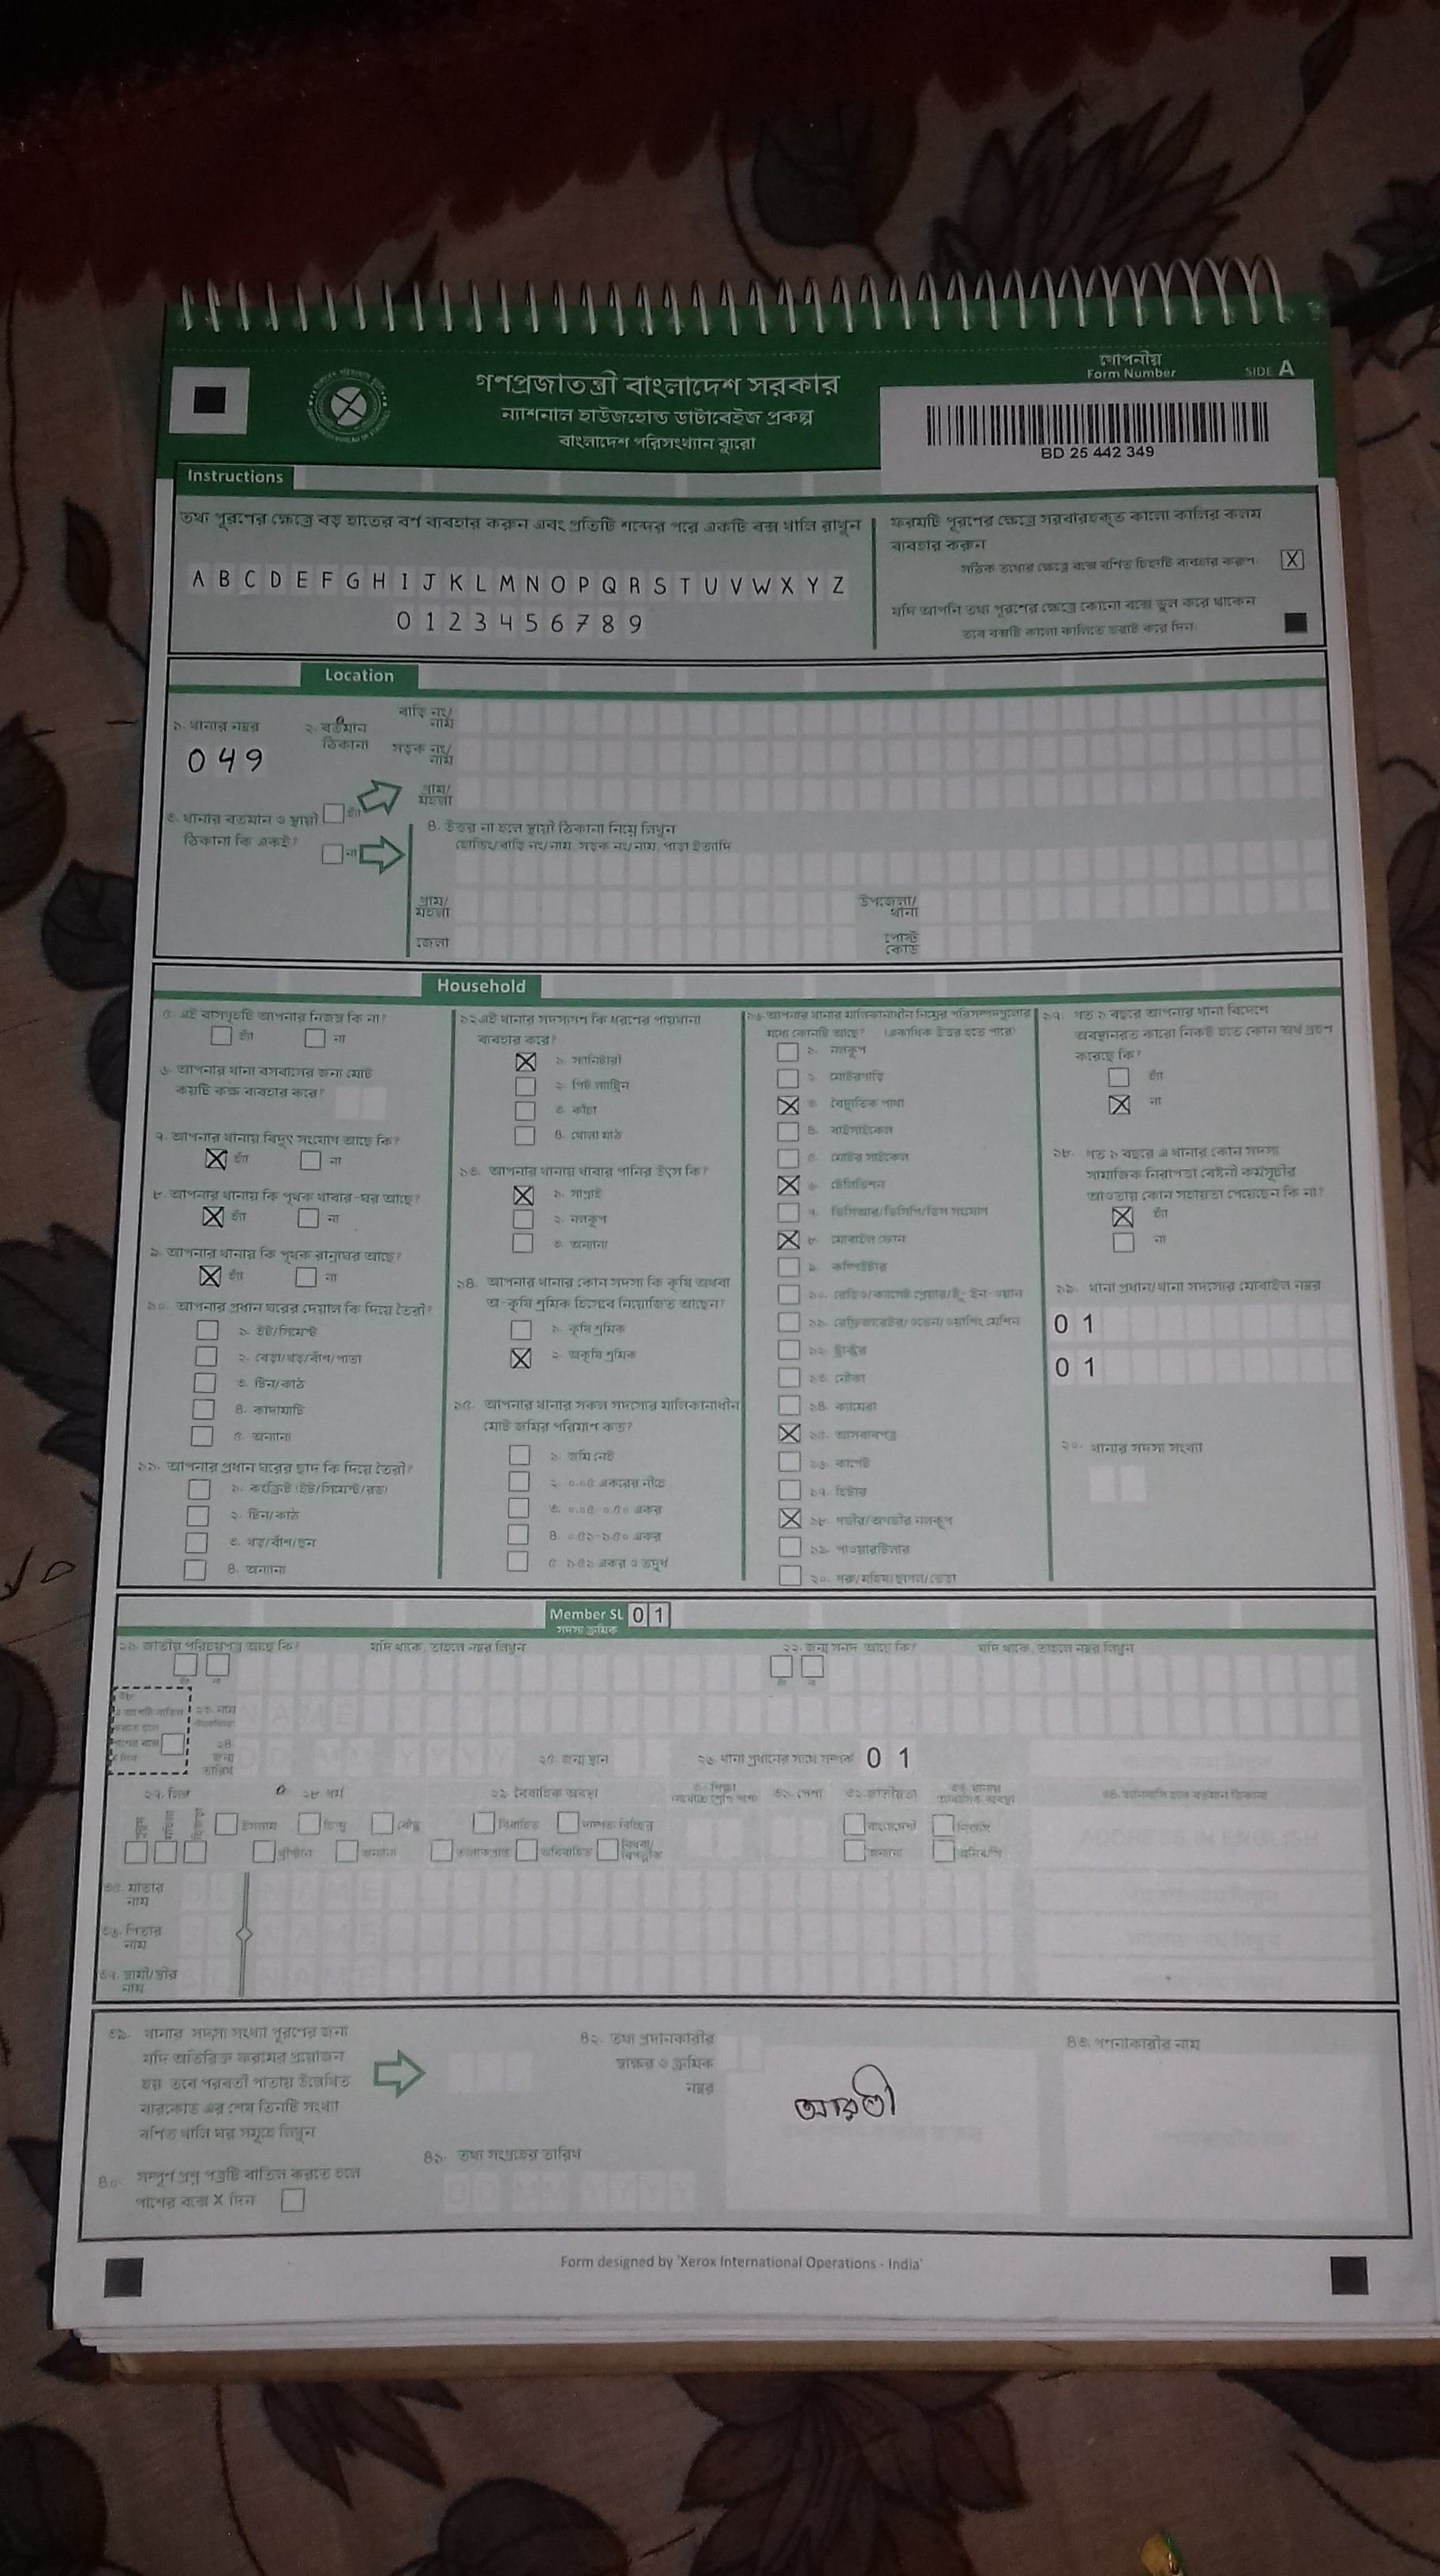 গোপনীয়
Form Number
SIDE A
গণপ্রজাতন্ত্রী বাংলাদেশ সরকার
ন্যাশনাল হাউজহোল্ড ডাটাবেইজ প্রকল্প
বাংলাদেশ পরিসংখ্যান ব্যুরো
BD 25 442 349
Instructions
তথ্য পূরণের ক্ষেত্রে বড় হাতের বর্ণ ব্যবহার করুন এবং প্রতিটি শব্দের পরে একটি বক্স খালি রাখুন
A B C D E F G H I J K L M N O P Q R S T U V W X Y Z
0 1 2 3 4 5 6 7 8 9
ফরমটি পূরণের ক্ষেত্রে সরবারহকৃত কালো কালির কলম
ব্যবহার করুন
সঠিক তথ্যের ক্ষেত্রে বক্সে বর্ণিত চিহ্নটি ব্যবহার করুণ
X
যদি আপনি তথ্য পূরণের ক্ষেত্রে কোনো বক্সে ভুল করে থাকেন
তবে বক্সটি কালো কালিতে ভরাট করে দিন
Location
১. খানার নম্বর
049
২. বর্তমান
ঠিকানা
বাড়ি নং/
নাম
সড়ক নং/
নাম
গ্রাম/
মহল্লা
৩. খানার বর্তমান ও স্থায়ী
ঠিকানা কি একই?
হ্যাঁ
না
৪. উত্তর না হলে স্থায়ী ঠিকানা নিম্নে লিখুন
হোল্ডিং/বাড়ি নং/নাম, সড়ক নং/নাম, পাড়া ইত্যাদি
গ্রাম/
মহল্লা
উপজেলা/
থানা
জেলা
পোস্ট
কোড
Household
৫. এই বাসগৃহটি আপনার নিজস্ব কি না?
হ্যাঁ না
৬. আপনার খানা বসবাসের জন্য মোট
কয়টি কক্ষ ব্যবহার করে?
৭. আপনার খানায় বিদ্যুৎ সংযোগ আছে কি?
X হ্যাঁ না
৮. আপনার খানায় কি পৃথক খাবার-ঘর আছে?
X হ্যাঁ না
৯. আপনার খানায় কি পৃথক রান্নাঘর আছে?
X হ্যাঁ না
১০. আপনার প্রধান ঘরের দেয়াল কি দিয়ে তৈরী?
১. ইট/সিমেন্ট
২. বেড়া/খড়/বাঁশ/পাতা
৩. টিন/কাঠ
৪. কাদামাটি
৫. অন্যান্য
১১. আপনার প্রধান ঘরের ছাদ কি দিয়ে তৈরী?
১. কংক্রিট (ইট/সিমেন্ট/রড)
২. টিন/কাঠ
৩. খড়/বাঁশ/ছন
৪. অন্যান্য
১২. এই খানার সদস্যগণ কি ধরণের পায়খানা
ব্যবহার করে?
X ১. স্যানিটারী
২. পিট ল্যাট্রিন
৩. কাঁচা
৪. খোলা মাঠ
১৩. আপনার খানায় খাবার পানির উৎস কি?
X ১. সাপ্লাই
২. নলকূপ
৩. অন্যান্য
১৪. আপনার খানার কোন সদস্য কি কৃষি অথবা
অ-কৃষি শ্রমিক হিসেবে নিয়োজিত আছেন?
১. কৃষি শ্রমিক
X ২. অকৃষি শ্রমিক
১৫. আপনার খানার সকল সদস্যের মালিকানাধীন
মোট জমির পরিমাণ কত?
১. জমি নেই
২. ০.০৫ একরের নীচে
৩. ০.০৫-০.৫০ একর
৪. ০.৫১-১.৫০ একর
৫. ১.৫১ একর ও তদুর্ধ
১৬. আপনার খানার মালিকানাধীন নিম্নের পরিসম্পদগুলোর
মধ্যে কোনটি আছে? (একাধিক উত্তর হতে পারে)
১. নলকূপ
২. মোটরগাড়ি
X ৩. বৈদ্যুতিক পাখা
৪. বাইসাইকেল
৫. মোটর সাইকেল
X ৬. টেলিভিশন
৭. ভিসিআর/ভিসিপি/ডিস সংযোগ
X ৮. মোবাইল ফোন
৯. কম্পিউটার
১০. রেডিও/ক্যাসেট প্লেয়ার/টু-ইন-ওয়ান
১১. রেফ্রিজারেটর/ওভেন/ওয়াশিং মেশিন
১২. ট্রাক্টর
১৩. নৌকা
১৪. ক্যামেরা
X ১৫. আসবাবপত্র
১৬. কার্পেট
১৭. হিটার
X ১৮. গভীর/অগভীর নলকূপ
১৯. পাওয়ারটিলার
২০. গরু/মহিষ/ছাগল/ভেড়া
১৭. গত ১ বছরে আপনার খানা বিদেশে
অবস্থানরত কারো নিকট হতে কোন অর্থ গ্রহণ
করেছে কি?
হ্যাঁ
X না
১৮. গত ১ বছরে এ খানার কোন সদস্য
সামাজিক নিরাপত্তা বেষ্টনী কর্মসূচীর
আওতায় কোন সহায়তা পেয়েছেন কি না?
X হ্যাঁ
না
১৯. খানা প্রধান/খানা সদস্যের মোবাইল নম্বর
0 1
0 1
২০. খানার সদস্য সংখ্যা
Member SL 0 1
সদস্য ক্রমিক
২১. জাতীয় পরিচয়পত্র আছে কি? যদি থাকে, তাহলে নম্বর লিখুন
২২. জন্ম সনদ আছে কি? যদি থাকে, তাহলে নম্বর লিখুন
২৩. নাম
২৪
জন্ম
তারিখ
২৫. জন্ম স্থান
২৬. খানা প্রধানের সাথে সম্পর্ক 0 1
২৭. লিঙ্গ
২৮. ধর্ম
২৯. বৈবাহিক অবস্থা
৩১. পেশা
৩২. জাতীয়তা
ইসলাম হিন্দু বৌদ্ধ
খ্রীস্টান অন্যান্য
বিবাহিত
তালাকপ্রাপ্ত অবিবাহিত
বাংলাদেশী
অন্যান্য
৩৫. মাতার
নাম
৩৬. পিতার
নাম
৩৭. স্বামী/স্ত্রীর
নাম
৩৯. খানার সদস্য সংখ্যা পূরণের জন্য
যদি অতিরিক্ত ফরমের প্রয়োজন
হয় তবে পরবর্তী পাতায় উল্লেখিত
বারকোড এর শেষ তিনটি সংখ্যা
বর্ণিত খালি ঘর সমূহে লিখুন
৪০. সম্পূর্ণ প্রশ্ন পত্রটি বাতিল করতে হলে
পাশের বক্সে X দিন
৪১. তথ্য সংগ্রহের তারিখ
৪২. তথ্য প্রদানকারীর
স্বাক্ষর ও ক্রমিক
নম্বর
আরতী
৪৩. গণনাকারীর নাম
Form designed by 'Xerox International Operations - India'